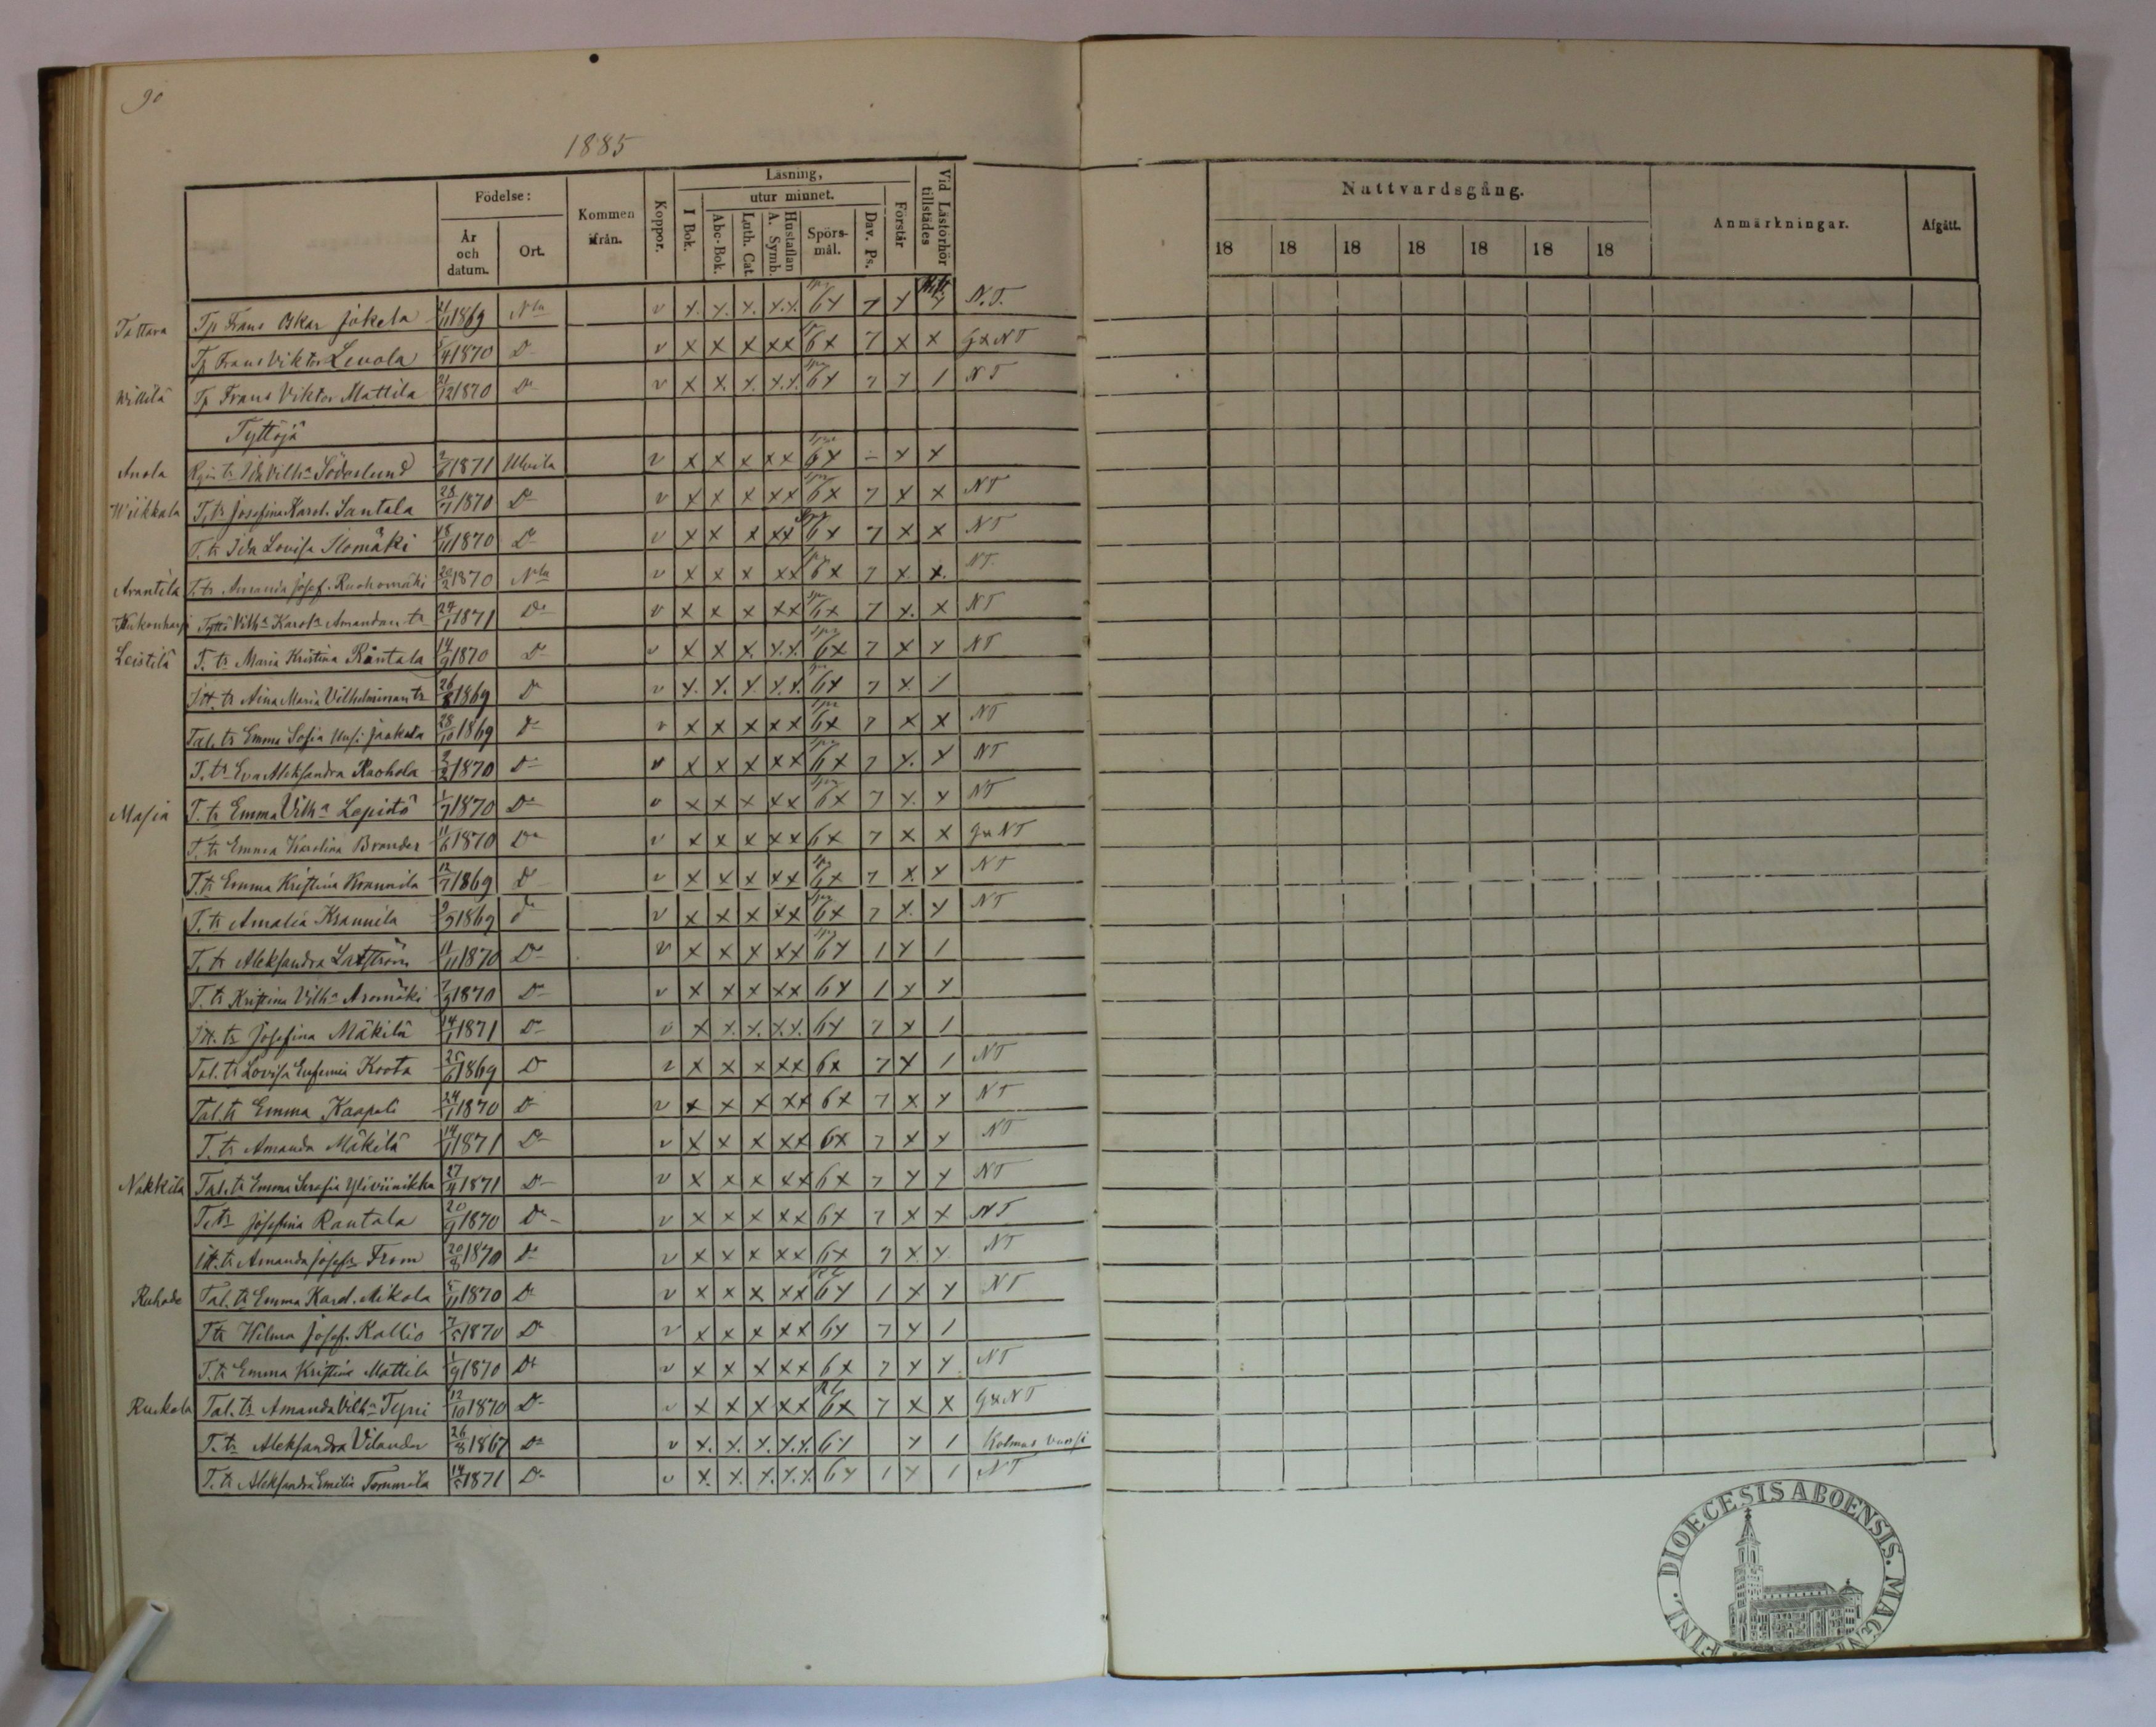 90
1885
Födelse:
År och datum.
Ort.
Kommen ifrån.
Koppor.
Läsning,
I Bok.
utur minnet.
Abc-Bok.
Luth. Cat.
Hustaflan A. Symb.
Spörsmål.
Dav. Ps.
Förstår
Vid Läsförhör tillstädes
Nattvardsgång.
18 18 18 18 18 18 18
Anmärkningar.
Afgått.
Tattara Tp Frans Oskar Jokela 1869 Nla v x. x. x. x.x. 6x 7 x N.T.
Tp Frans Viktor Levola 1870 Do v x x x x x 6x 7 x x G x NT
Willilä Tp Frans Viktor Mattila 21/12 1870 Do v x x. x. x.x. 6x 7 x 1 NT
Tyttöjä
Anola Ida Vilh:a Söderlund 1871 Ulvila v x x x x x 6x – x x
Wiikkala T. tr Josefina Karol. Santala 28/7 1870 Do v x x x x x 6x 7 x x NT
T. tr Ida Lovisa Ilomäki 18/11 1870 Do v x x x x x 6x 7 x x NT
Arantila T. tr Amanda Josef. Ruohomäki 20/2 1870 Nla v x x x x x 6x 7 x. x. NT.
Kukonharja Tyttö Vilh:a Karol:a Amandan tr 24/1 1871 Do v x x x x x 6x 7 x. x NT
Leistilä T. tr Maria Kristina Rantala 14/9 1870 Do v x x x. x.x. 6x 7 x x NT
Itt. tr Aina Maria Vilhelminan tr 26/8 1869 Do v x. x. x. x.x. 6x 7 x. 1
Tal. tr Emma Sofia Uusi Jaakola 28/10 1869 Do v x x x x x 6x 7 x x NT
T. tr Eva Aleksandra Ruohola 1870 Do v x x x x x 6x 7 x. x NT
Masia T. tr Emma Vilh:a Lepistö 1/7 1870 Do v x x x x x 6x 7 x. x NT
T. tr Emma Karolina Brander 11/6 1870 Do v x x x x x 6x 7 x x G x NT
T. tr Emma Kristina Krannila 12/7 1869 Do v x x x x x 6x 7 x. x NT
T. tr Amalia Krannila 1869 Do v x x x x x 6x 7 x. x NT
T. tr Aleksandra Latström 11/11 1870 Do v x x x x x 6x 1 x 1
T. tr Kristina Vilh:a Aromäki 1870 Do v x x x x x 6x 1 x x
Itt. tr Josefina Mäkilä 14/1 1871 Do v x x. x. x.x. 6x 7 x 1
Tal. tr Lovisa Eufemia Koota 25/6 1869 Do v x x x x x 6x 7 x 1 NT
Tal. tr Emma Kaapeli 24/1 1870 Do v x x x x x 6x 7 x x NT
T. tr Amanda Mäkilä 14/1 1871 Do v x x x x x 6x 7 x x NT
Nakkila Tal. tr Emma Serafia Yliviinikka 27/4 1871 Do v x x x x x 6x 7 x x NT
T. tr Josefina Rantala 20/9 1870 Do v x x x x x 6x 7 x x NT
Itt. tr Amanda Josef:a From 20/8 1870 Do v x x x x x 6x 7 x x NT
Ruhade Tal. tr Emma Karol. Aikola 5/11 1870 Do v x x x x x 6x 1 x x NT
T tr Wilma Josef. Kallio 7/5 1870 Do v x x x x x 6x 7 x 1
T. tr Emma Kristina Mattila 1/9 1870 Do v x x x x x 6x 7 x x NT
Ruskola Tal. tr Amanda Vilh:a Tyni 12/10 1870 Do v x x x x x 6x 7 x x G x NT
T. tr Aleksandra Vilander 26/8 1867 Do v x. x. x. x.x. 6x x 1 Kolmas vuosi
T. tr Aleksandra Emilia Tommila 14/5 1871 Do v x. x. x. x.x. 6x 1 x 1 NT
FINL. DIOECESIS ABOENSIS. MAGNI